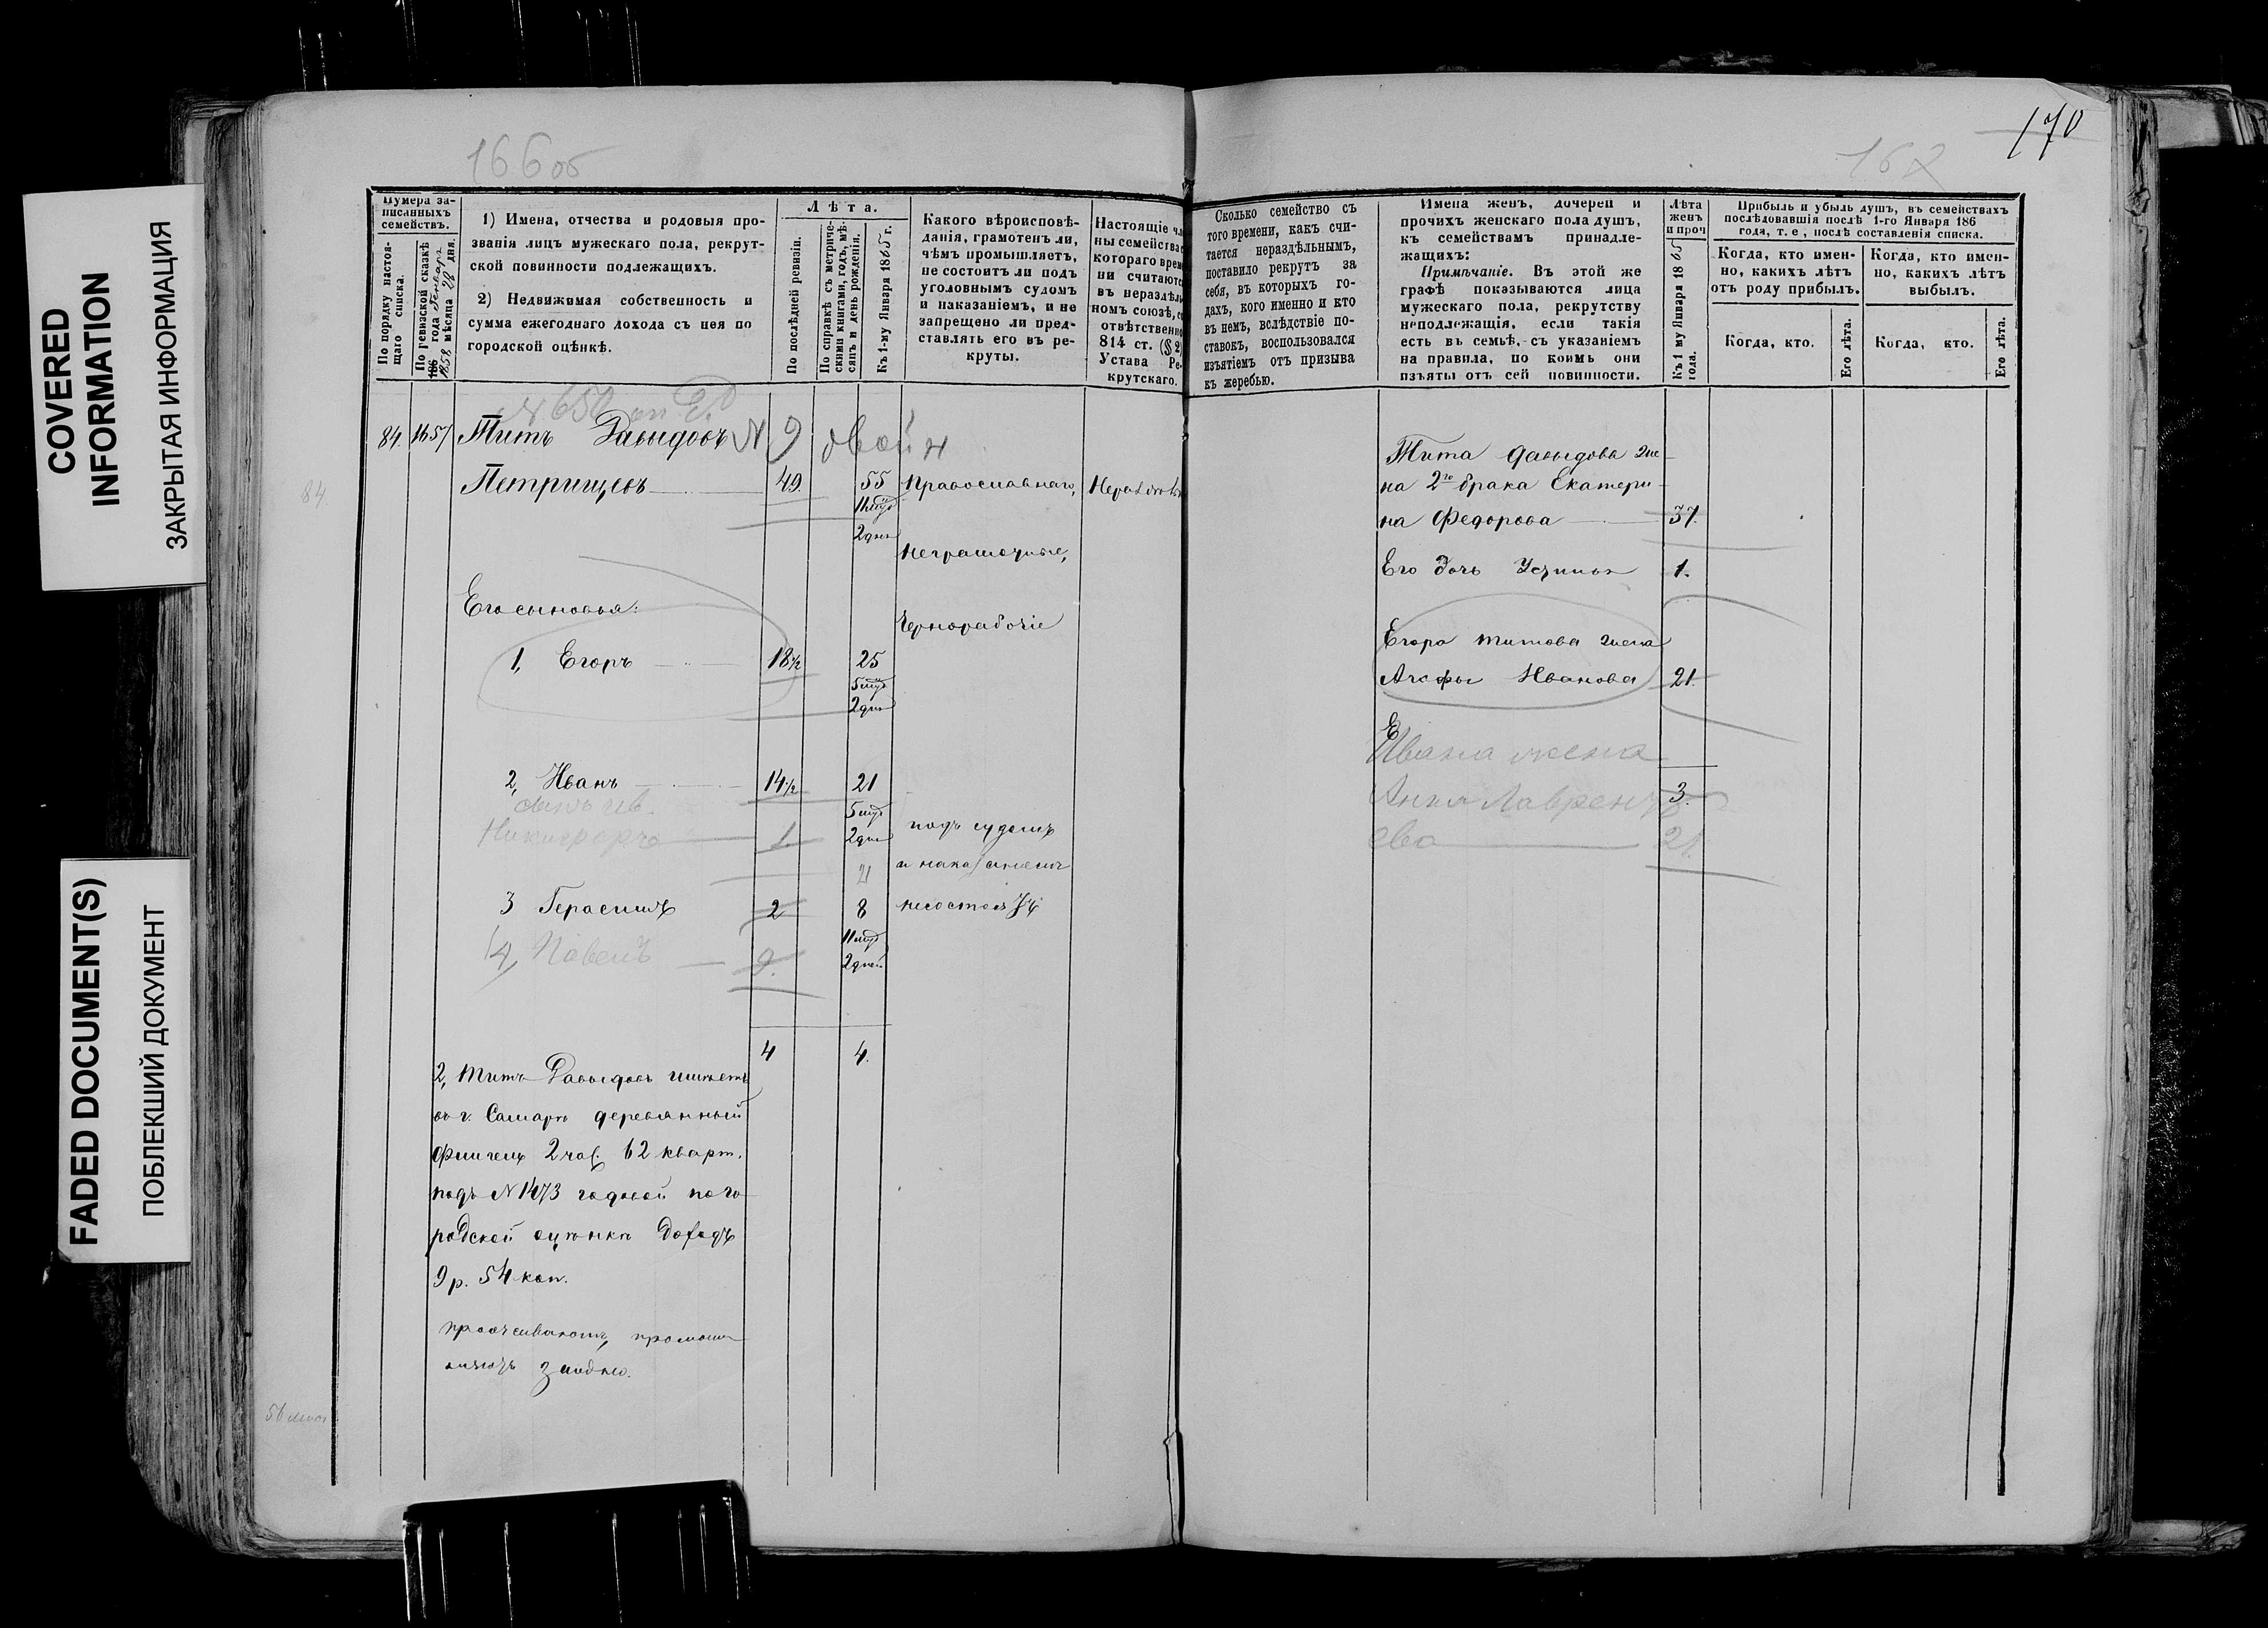 COVERED
INFORMATION
ЗАКРЫТАЯ ИНФОРМАЦИЯ
FADED DOCUMENT(S)
ПОБЛЕКШИЙ ДОКУМЕНТ
166 об
Нумера за-
писанныхъ
семействъ.
По порядку настоя-
щаго списка.
По ревизской сказкѣ
186 года Генваря
1858 мѣсяца 28 дня.
1) Имена, отчества и родовыя про-
званія лицъ мужескаго пола, рекрут-
ской повинности подлежащихъ.
2) Недвижимая собственность и
сумма ежегоднаго дохода съ нея по
городской оцѣнкѣ.
Лѣта.
По послѣдней ревизіи.
По справкѣ съ метриче-
скими книгами, годъ, мѣ-
сяцъ и день рожденія.
Къ 1-му Января 1865 г.
Какого вѣроисповѣ-
данія, грамотенъ ли,
чѣмъ промышляетъ,
не состоитъ ли подъ
уголовнымъ судомъ
и наказаніемъ, и не
запрещено ли пред-
ставлять его въ ре-
круты.
Настоящіе чл
ны семейства
котораго врем
ни считаютс
въ нераздѣл
номъ союзѣ, с
отвѣтственно
814 ст. (§ 2)
Устава Ре-
крутскаго.
84. 1657 Титъ Давыдовъ N 9 двой н
Петрищевъ 49. 55 Православнаго,
11 мѣс
2 дня
неграмотные,
Его сыновья:
чернорабочіе
1, Егоръ 18½ 25
5 мѣс
2 дня
2, Иванъ 14½ 21
сынъ ив. 5 мѣс
Никифоръ 1. 2 дня подъ судомъ
21 и наказаніемъ
3 Герасимъ 2 8 несостоятъ
11 мѣс
4, Павелъ 9. 2 дней
4 4.
2, Титъ Давыдовъ имѣетъ
въ г. Самарѣ деревянный
флигель 2 час. 62 кварт.
подъ N 1473 годовой по го-
родской оцѣнкѣ доходъ
9 р. 54 коп.
84.
170
167
Сколько семейство съ
того времени, какъ счи-
тается нераздѣльнымъ,
поставило рекрутъ за
себя, въ которыхъ го-
дахъ, кого именно и кто
въ немъ, вслѣдствіе по-
ставокъ, воспользовался
изъятіемъ отъ призыва
къ жеребью.
Имена женъ, дочерей и
прочихъ женскаго пола душъ,
къ семействамъ принадле-
жащихъ:
Примѣчаніе. Въ этой же
графѣ показываются лица
мужескаго пола, рекрутству
неподлежащія, если такія
есть въ семьѣ, съ указаніемъ
на правила, по коимъ они
изъяты отъ сей повинности.
Лѣта
женъ
и проч
Къ 1 му Января 1865
года.
Прибыль и убыль душъ, въ семействахъ
послѣдовавшія послѣ 1-го Января 186
года, т. е., послѣ составленія списка.
Когда, кто имен-
но, какихъ лѣтъ
отъ роду прибылъ.
Когда, кто имен-
но, какихъ лѣтъ
выбылъ.
Когда, кто.
Его лѣта.
Когда, кто.
Его лѣта.
Тита Давыдова же-
на 2го брака Екатери-
на Федорова 37.
Его дочь Устинья 1.
Егора Титова жена
Агафья Иванова 21.
Ивана жена
3.
Анна Лаврентье
ева 21.